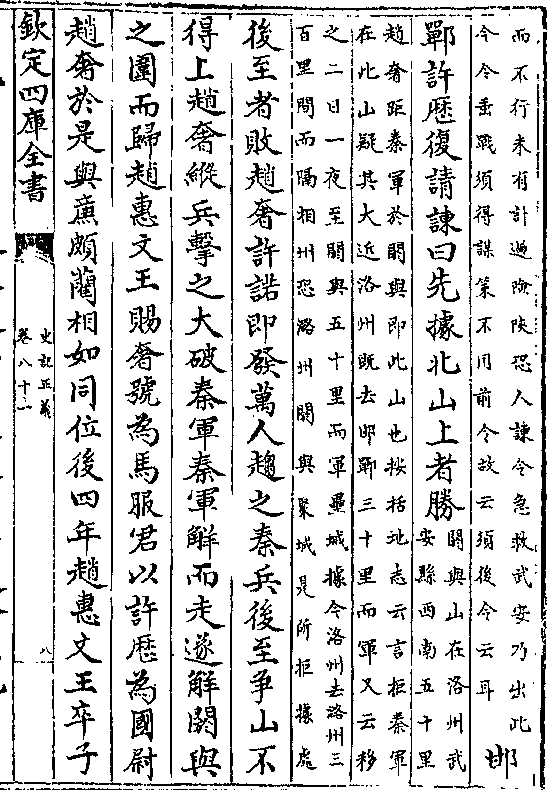 而不行未有計過險陜恐人諫令急救武安乃出此
令今垂戰須得謀策不用前令故云須後令云耳
邯
鄲許歴復請諫曰先據北山上者勝
閼與山在洛州武
安縣西南五十里
趙奢距秦軍於閼與即此山也按括地志云言拒秦軍
在此山疑其大近洛州既去邯鄲三十里而軍又云移
之二日一夜至閼與五十里而軍壘城據今洛州去潞州三
百里間而隔相州恐潞州閼與聚城是所拒據處
後至者敗趙奢許諾即發萬人趨之秦兵後至爭山不
得上趙奢縱兵擊之大破秦軍秦軍解而走遂解閼與
之圍而歸趙惠文王賜奢號為馬服君以許歴為國尉
趙奢於是與亷頗藺相如同位後四年趙惠文王卒子
欽定四庫全書
史記正義
卷八十一
八